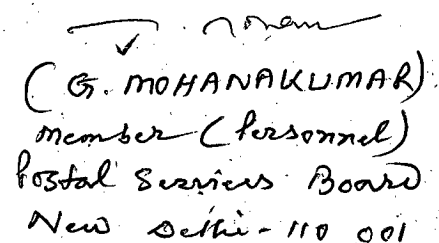 (G. MOHANAKUMAR)
Member (Personnel)
Postal Services Board
New Delhi - 110 001